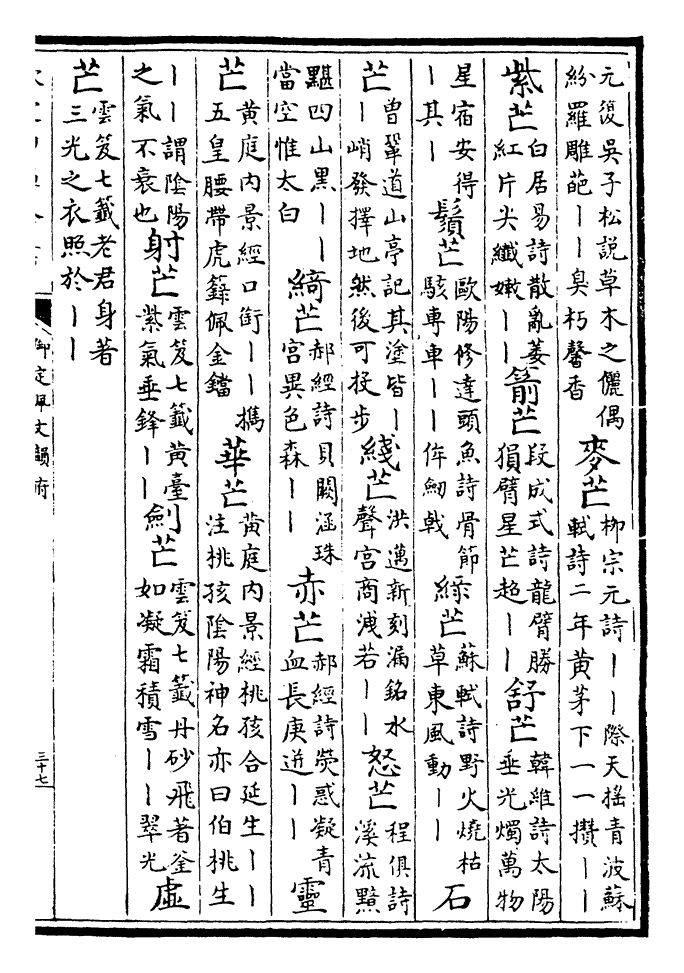 元復吳子松說草木之儷偶
紛羅雕葩——臭朽馨香
麥芒
柳宗元詩——際天搖青波蘇
軾詩二年黃茅下一一攢——
紫芒
白居易詩散亂萎
紅片尖纖嫩——
箭芒
段成式詩龍臂勝
狷臂星芒超——
舒芒
韓維詩太陽
垂光燭萬物
星宿安得
—其—
鬚芒
歐陽修達頭魚詩骨節
駭專車——侔劒戟
綠芒
蘇軾詩野火燒枯
草東風動——
石
芒
曾鞏道山亭記其塗皆—
—峭發擇地然後可投步
綫芒
洪邁新刻漏銘水
聲宮商洩若——
怒芒
程俱詩
溪流黯
黮四山黑——
當空惟太白
綺芒
郝經詩貝闕涵珠
宮異色森——
赤芒
郝經詩熒惑凝青
血長庚迸——
靈
芒
黃庭內景經口銜——攜
五皇腰帶虎籙佩金鐺
華芒
黃庭內景經桃孩合延生——
注桃孩陰陽神名亦曰伯桃生
——謂陰陽
之氣不衰也
射芒
雲笈七籤黃臺
紫氣垂鋒——
劍芒
雲笈七籤丹砂飛著釜
如凝霜積雪——翠光
虛
芒
雲笈七籤老君身著
三光之衣照於——
御定佩文韻府
三十七